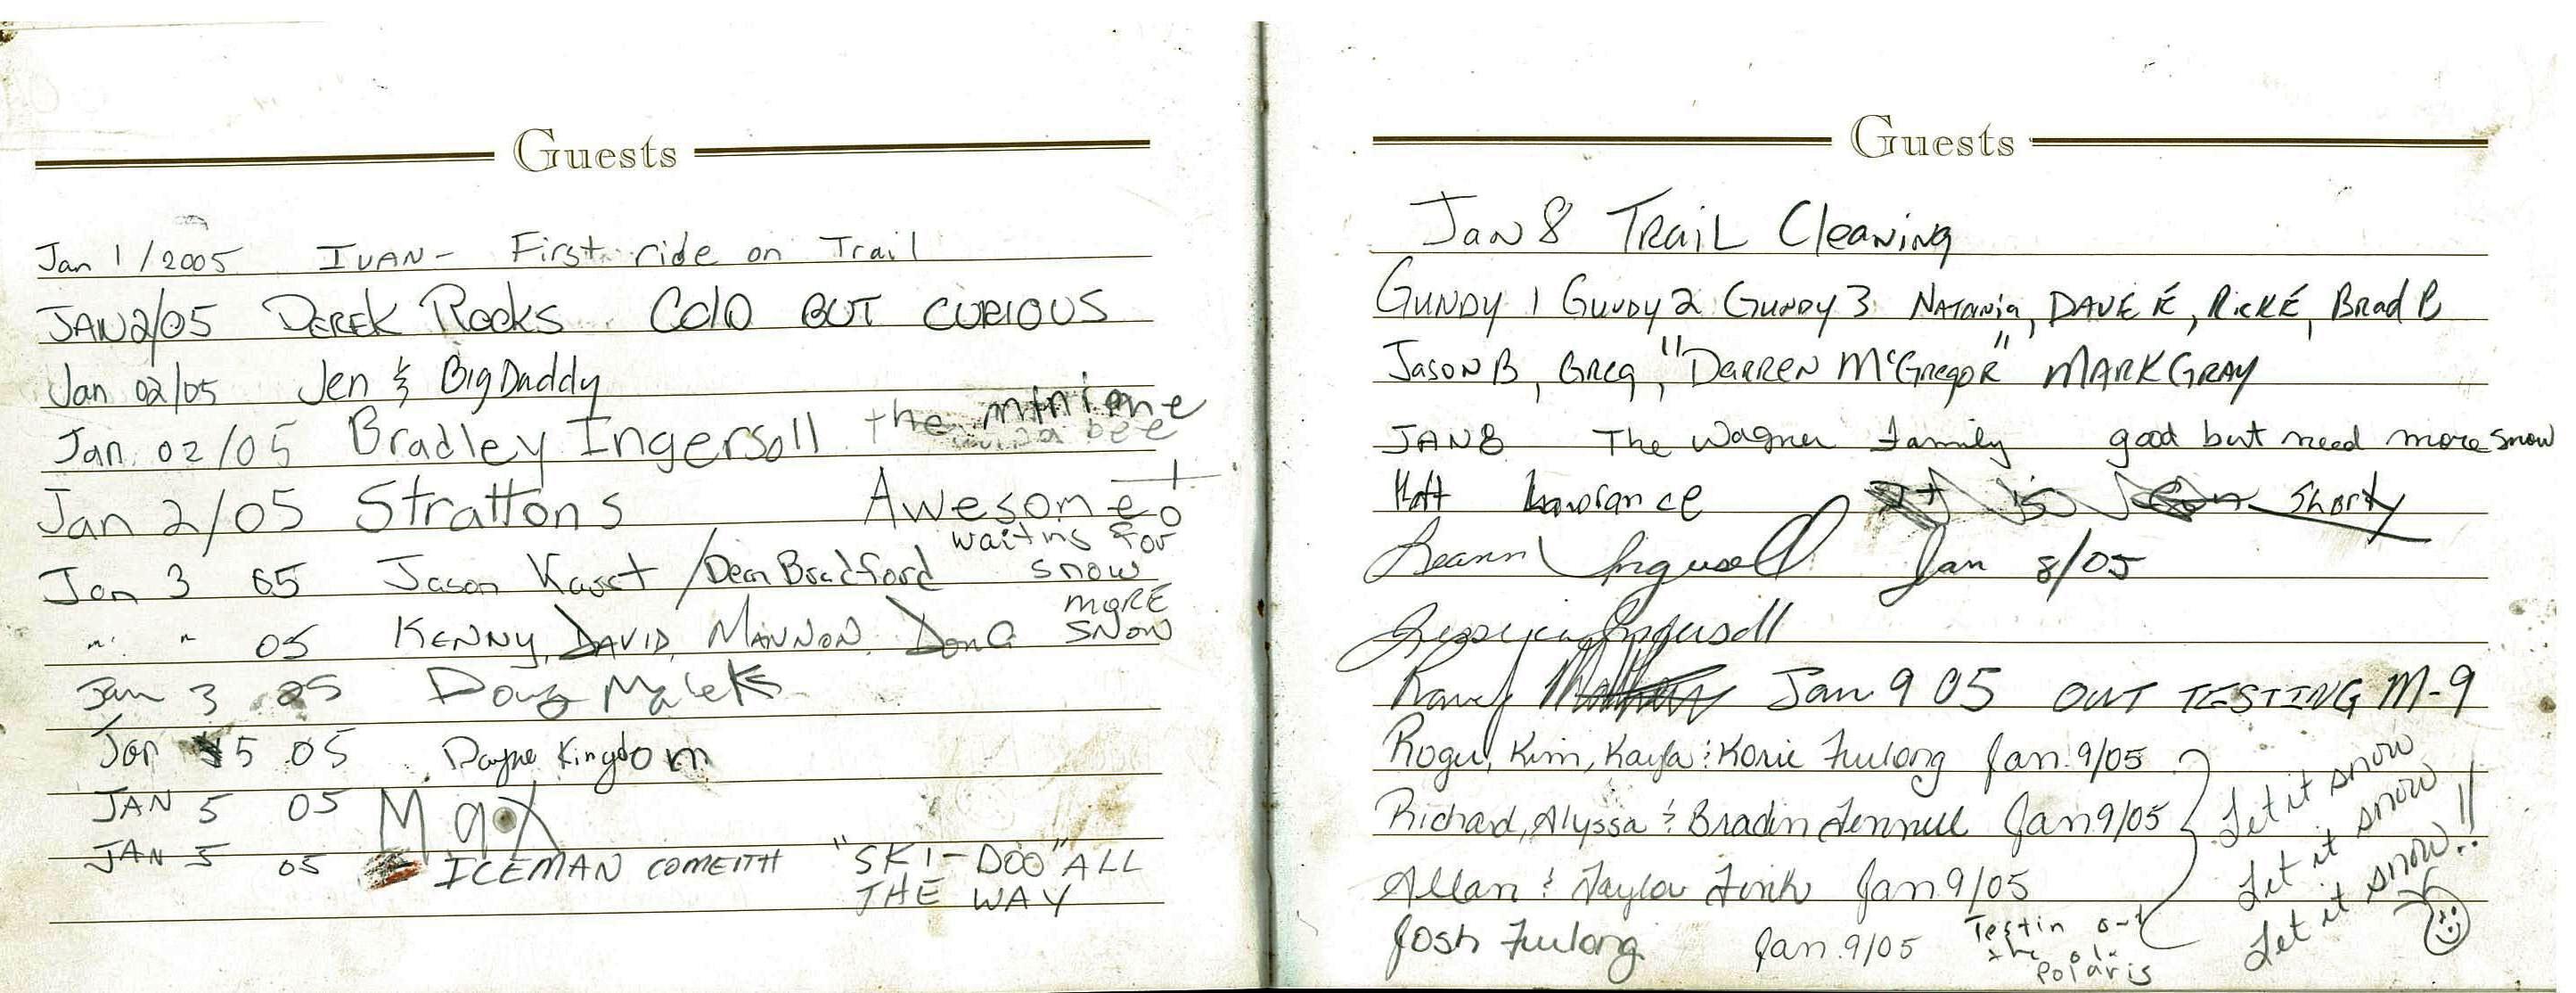 Guests
Jan 1/2005 IVAN- First ride on Trail
JAN2/05 DEREK Rooks Cold BUT CURIOUS
Jan 02/05 Jen & Big Daddy
Jan. 02/05 Bradley Ingersoll the
bee
Jan 2/05 Strattons Awesome
waiting for
Jan 3 05 Jason / Dean Bradford snow
MORE
" " 05 KENNY, DAVID, MANNON, SNOW
Jan 3 05 Doug
Jan 5 05 Payne Kingdom
JAN 5 05 Max
JAN 5 05 ICEMAN COMEITH "SKI-DOO" ALL
THE WAY
Guests
Jan 8 TRAIL Cleaning
GUNDY 1 GUNDY 2 GUNDY 3 NATANIA, DAVE E, RICK E, Brad B
JASON B, GREG, "DARREN McGregor" MARK GRAY
JAN 8 The Wagner Family good but need more snow
Matt Lawrance Shorty
Leann Ingersoll Jan 8/05
Ingersoll
Randy Jan 9 05 OUT TESTING M-9
Roger, Kim, Kayla & Korie Furlong Jan. 9/05
Richard, Alyssa & Bradin Jan 9/05
Allan & Taylor Fink Jan 9/05
Josh Furlong Jan. 9/05
Testin out
the ol
Polaris
Let it snow
Let it snow
Let it snow!!